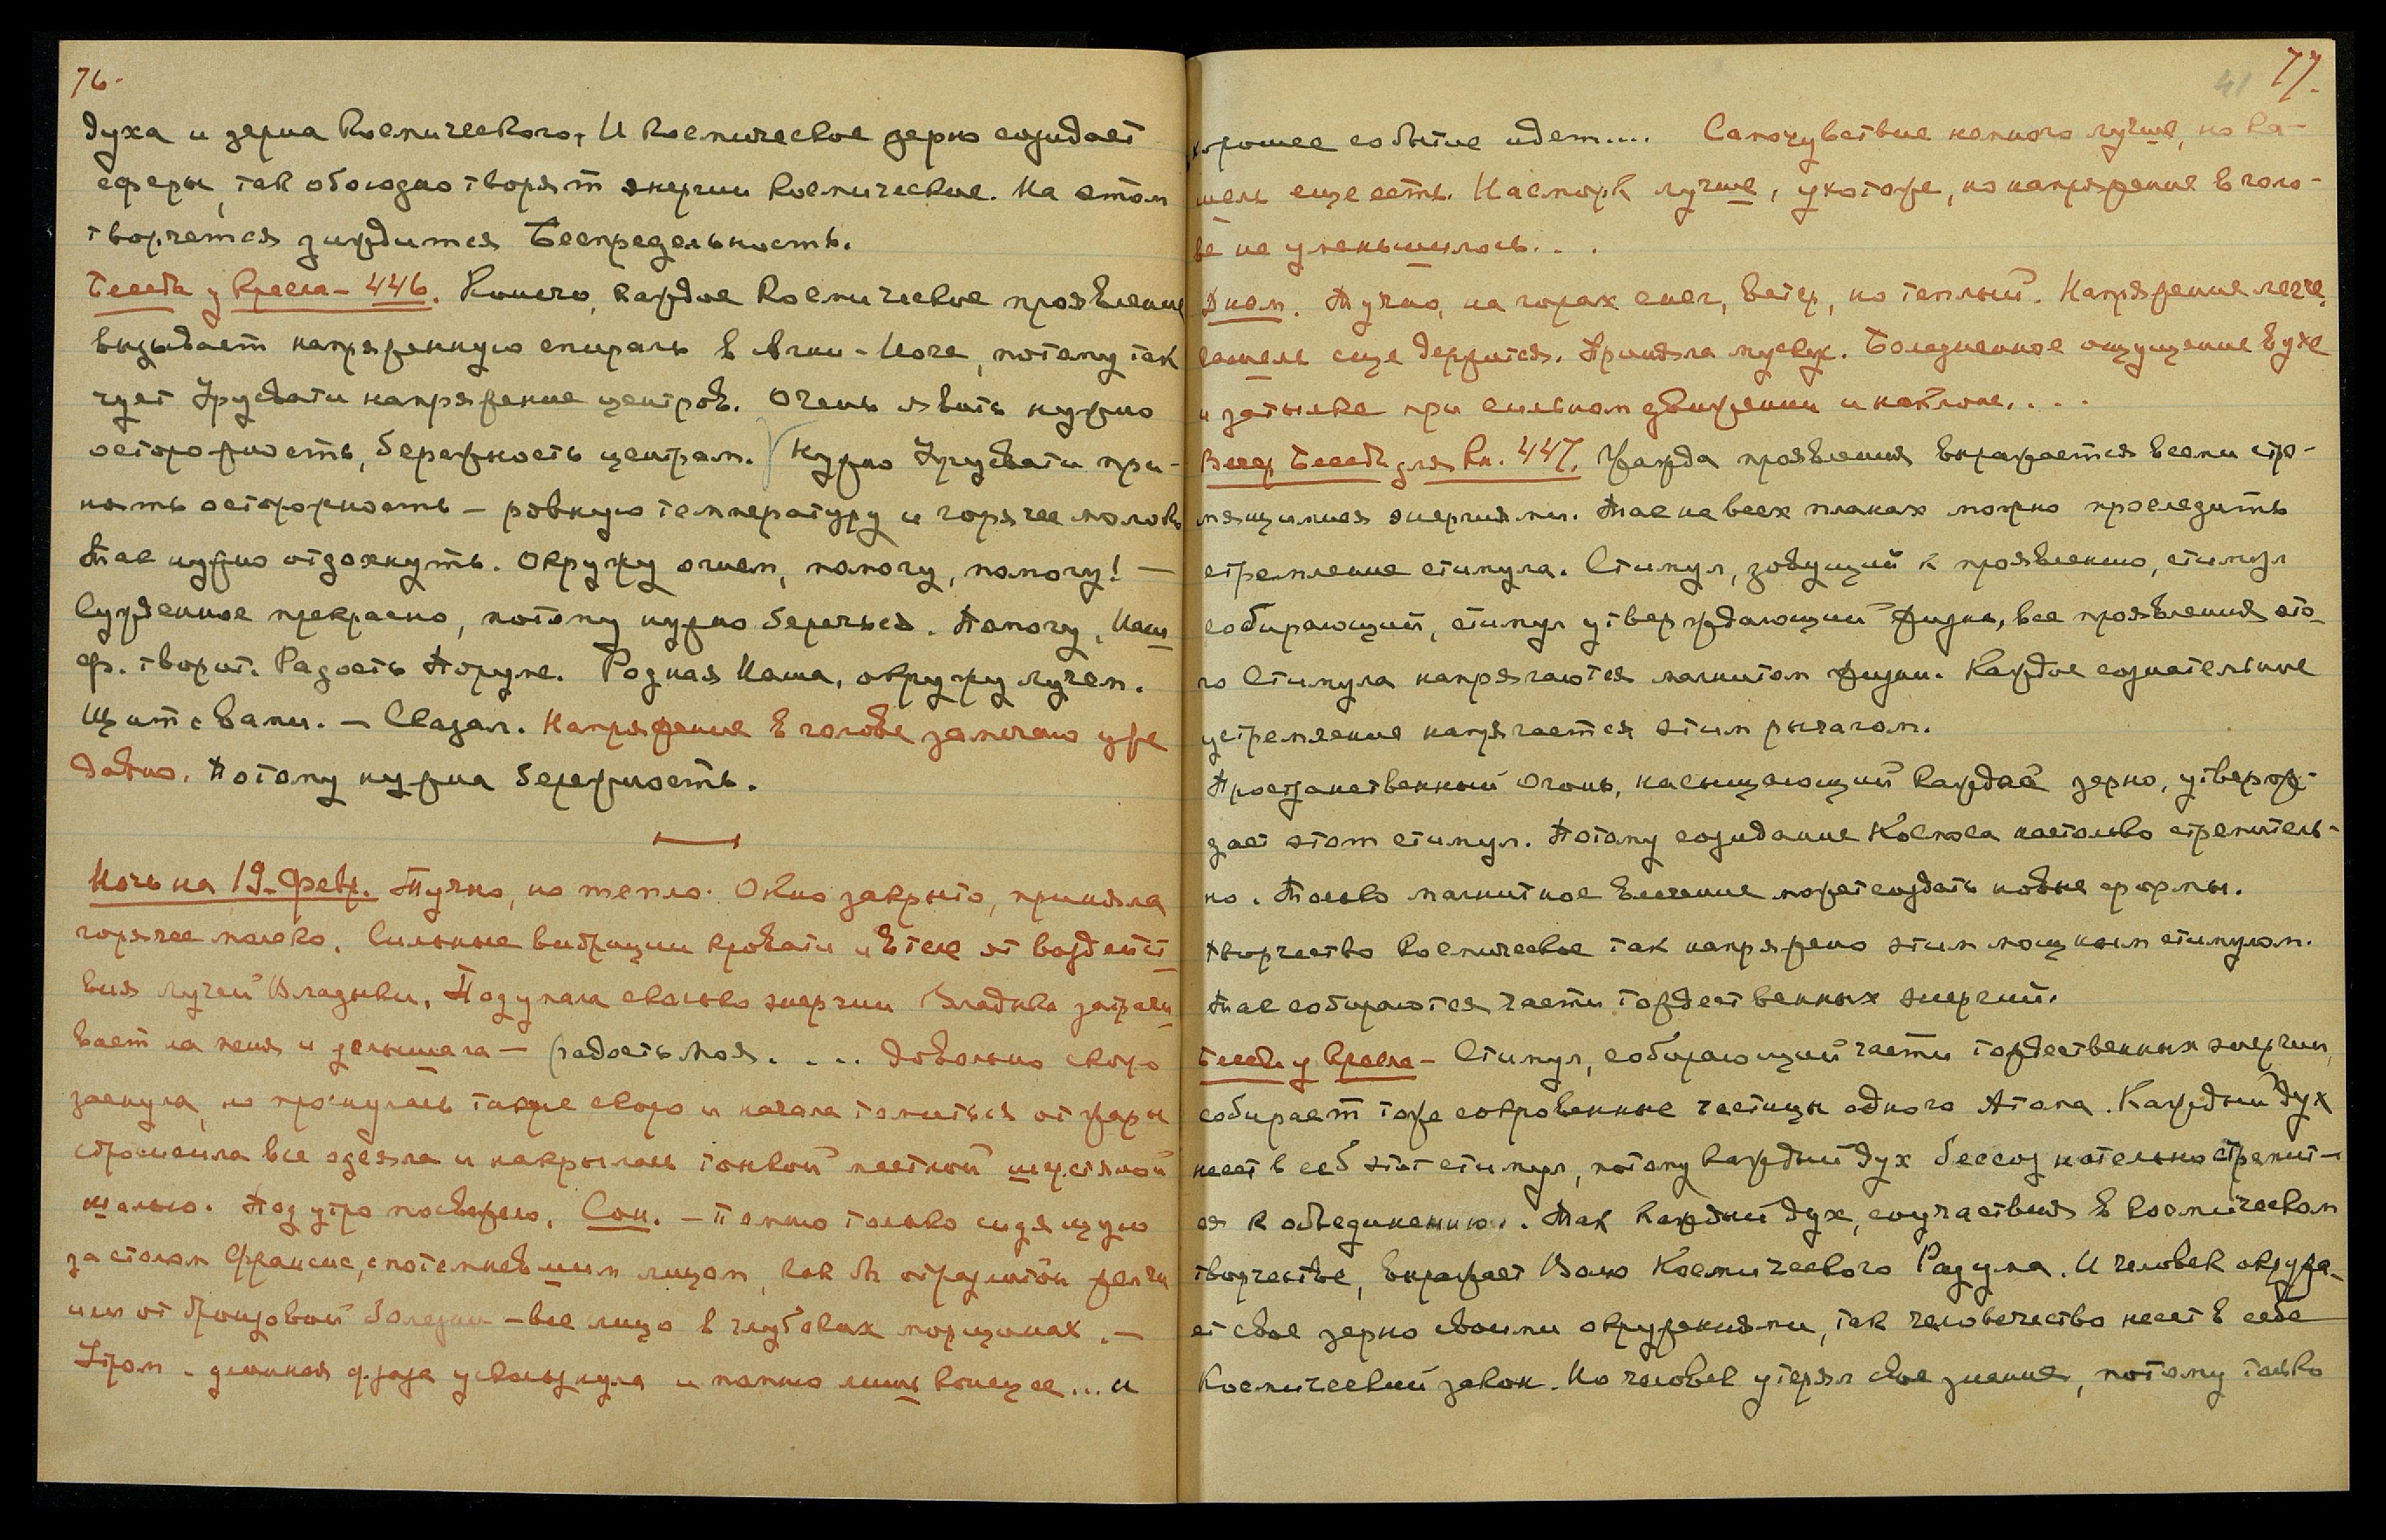 76.
духа и зерна Космического. И Космическое зерно созидает
сферы, так обоюдно творят энергии Космические. На этом
творчестве зиждится Беспредельность.
Беседа у Кресла – 446. Конечно, каждое Космическое проявление
вызывает напряженную спираль в Агни-Йоге, потому так
чует Урусвати напряжение центров. Очень явить нужно
осторожность, бережность центрам. Нужно Урусвати при-
нять осторожность – ровную температуру и горячее молоко
Так нужно отдохнуть. Окружу огнем, помогу, помогу! –
Сужденное прекрасно, потому нужно беречься. Помогу, Наш
Ф. творит. Радость Поруме. Родная Наша, окружу лучем.
Щит с вами. – Сказал. Напряжение в голове замечено уже
давно. Потому нужна бережность.
Ночь на 19-февр. Тучно, но тепло. Окно закрыто, приняла
горячее молоко. Сильные вибрации кровати и в теле от воздейст
вия лучей Владыки. Подумала сколько энергии Владыка затрачи
вает на меня и услышала – радость моя. . .. Довольно скоро
заснула, но проснулась также скоро и начала томиться от жары
сбросила все одеяла и накрылась тонкой местной шерстяной
шалью. Под утро посвежело. Сон. – Помню только сидящую
за столом Франсис, с потемневшим лицом, как бы от разлития желчи
или от бронзовой болезни – все лицо в глубоких морщинах. –
Утром – длинная фраза ускользнула и помню лишь конец ее... и
41 77.
хорошее событие идет.... Самочувствие немного лучше, но ка-
шель еще есть. Насморк лучше, ухо тоже, но напряжение в голо-
ве не уменьшилось. . .
Днем. Тучно, на горах снег, ветер, но теплый. Напряжение легче,
кашель еще держится. Приняла мускус. Болезненное ощущение в ухе
и затылке при сильном движении и наклоне. . . .
Вечер Беседа для Кн. 447. Жажда проявления выражается всеми стре-
мящимися энергиями. Так на всех планах можно проследить
стремление стимула. Стимул, зовущий к проявлению, стимул
собирающий, стимул утверждающий жизнь, все проявления это-
го Стимула напрягаются магнитом жизни. Каждое сознательное
устремление напрягается этим рычагом.
Пространственный Огонь, насыщающий каждое зерно, утверж-
дает этот стимул. Потому созидание Космоса настолько стремитель-
но. Только магнитное влечение может создать новые формы.
Творчество Космическое так напряжено этим мощным стимулом.
Так собираются части тождественных энергий.
Беседа у Кресла – Стимул, собирающий части тождественных энергий,
собирает тоже сокровенные частицы одного Атома. Каждый дух
несет в себ этот стимул, потому каждый дух бессознательно стремит-
ся к объединению. Так каждый дух, соучаствуя в космическом
творчестве, выражает Волю Космического Разума. И человек окружа-
ет свое зерно своими окружениями, так человечество несет в себе
Космический закон. Но человек утерял свое знание, потому только